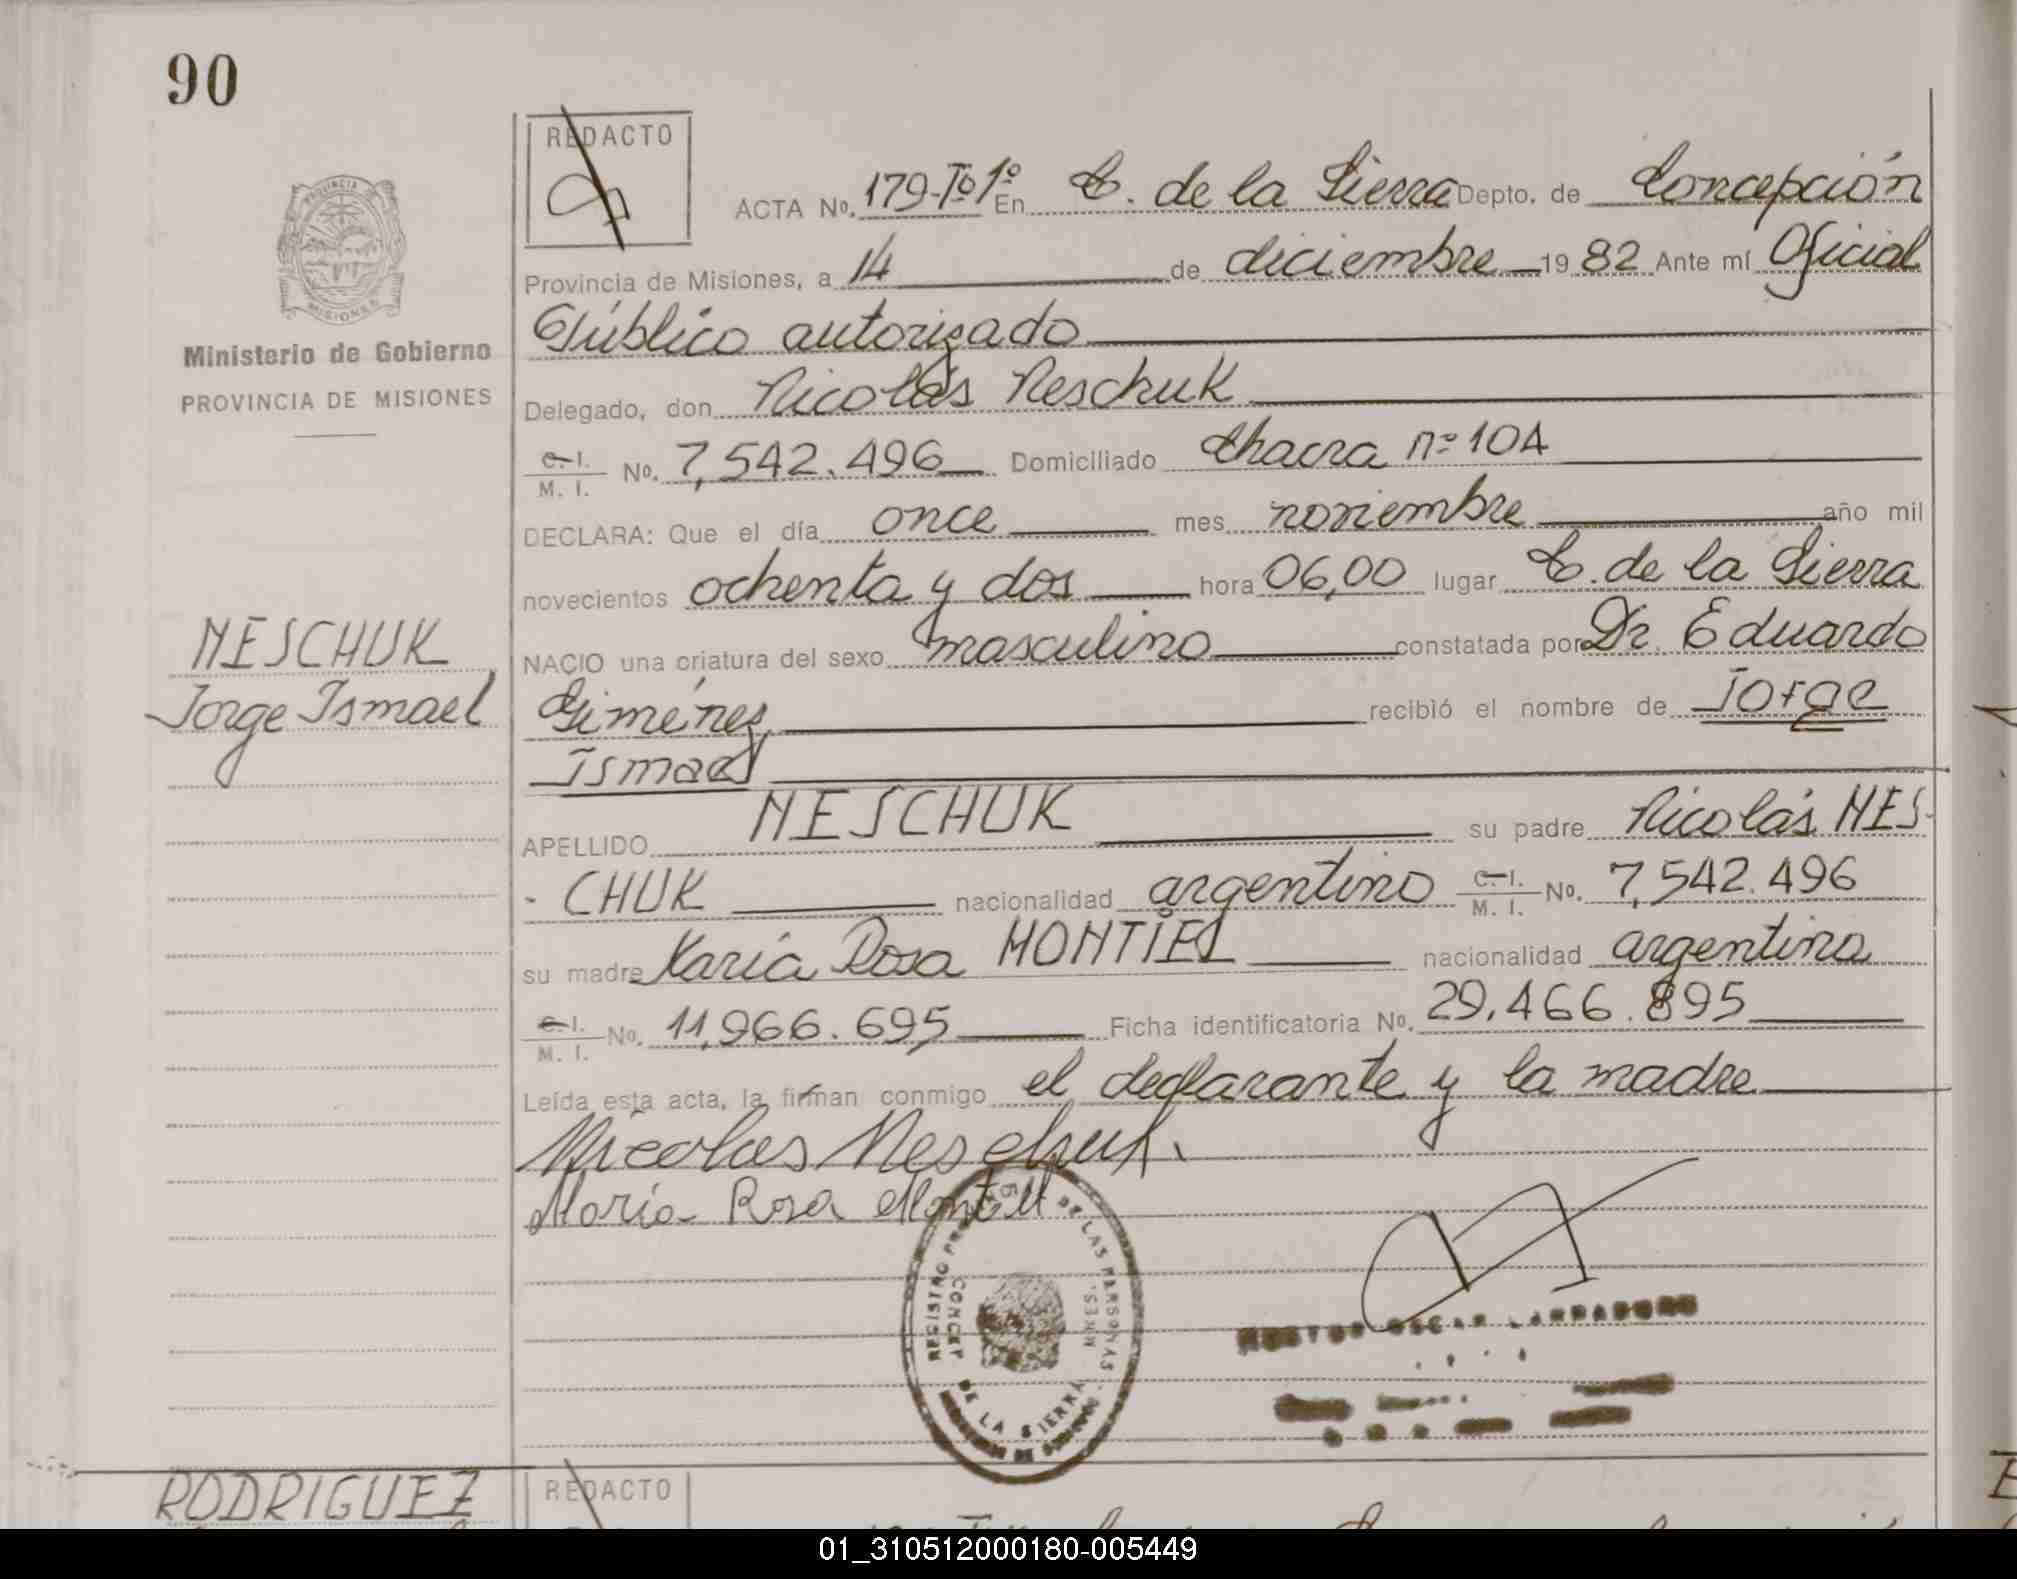 90
REDACTO
ACTA No. 179-Tº1º En C. de la Sierra Depto. de Concepción
PROVINCIA
MISIONES
Provincia de Misiones, a 14 de diciembre 1982 Ante mí Oficial
Público autorizado
Ministerio de Gobierno
PROVINCIA DE MISIONES
Delegado, don Nicolás Neschuk
C. I.
M. I. No. 7,542.496 Domiciliado Chacra nº 104
DECLARA: Que el día once mes noviembre año mil
novecientos ochenta y dos hora 06,00 lugar C. de la Sierra
NESCHUK
Jorge Ismael
NACIO una criatura del sexo masculino constatada por Dr. Eduardo
Giménez recibió el nombre de Jorge
Ismael
APELLIDO NESCHUK su padre Nicolás NES-
- CHUK nacionalidad argentino C. I. M. I. No. 7,542.496
su madre María Rosa MONTIEL nacionalidad argentina
C. I.
M. I. No. 11,966.695 Ficha identificatoria No. 29.466.895
Leída esta acta, la firman conmigo el declarante y la madre
Nicolas Neschuk.
Maria Rosa Montiel
REGISTRO DE LAS PERSONAS
CONCEP. DE LA SIERRA MNES.
NESTOR OSCAR LARRABURO
RODRIGUEZ
REDACTO
01_310512000180-005449